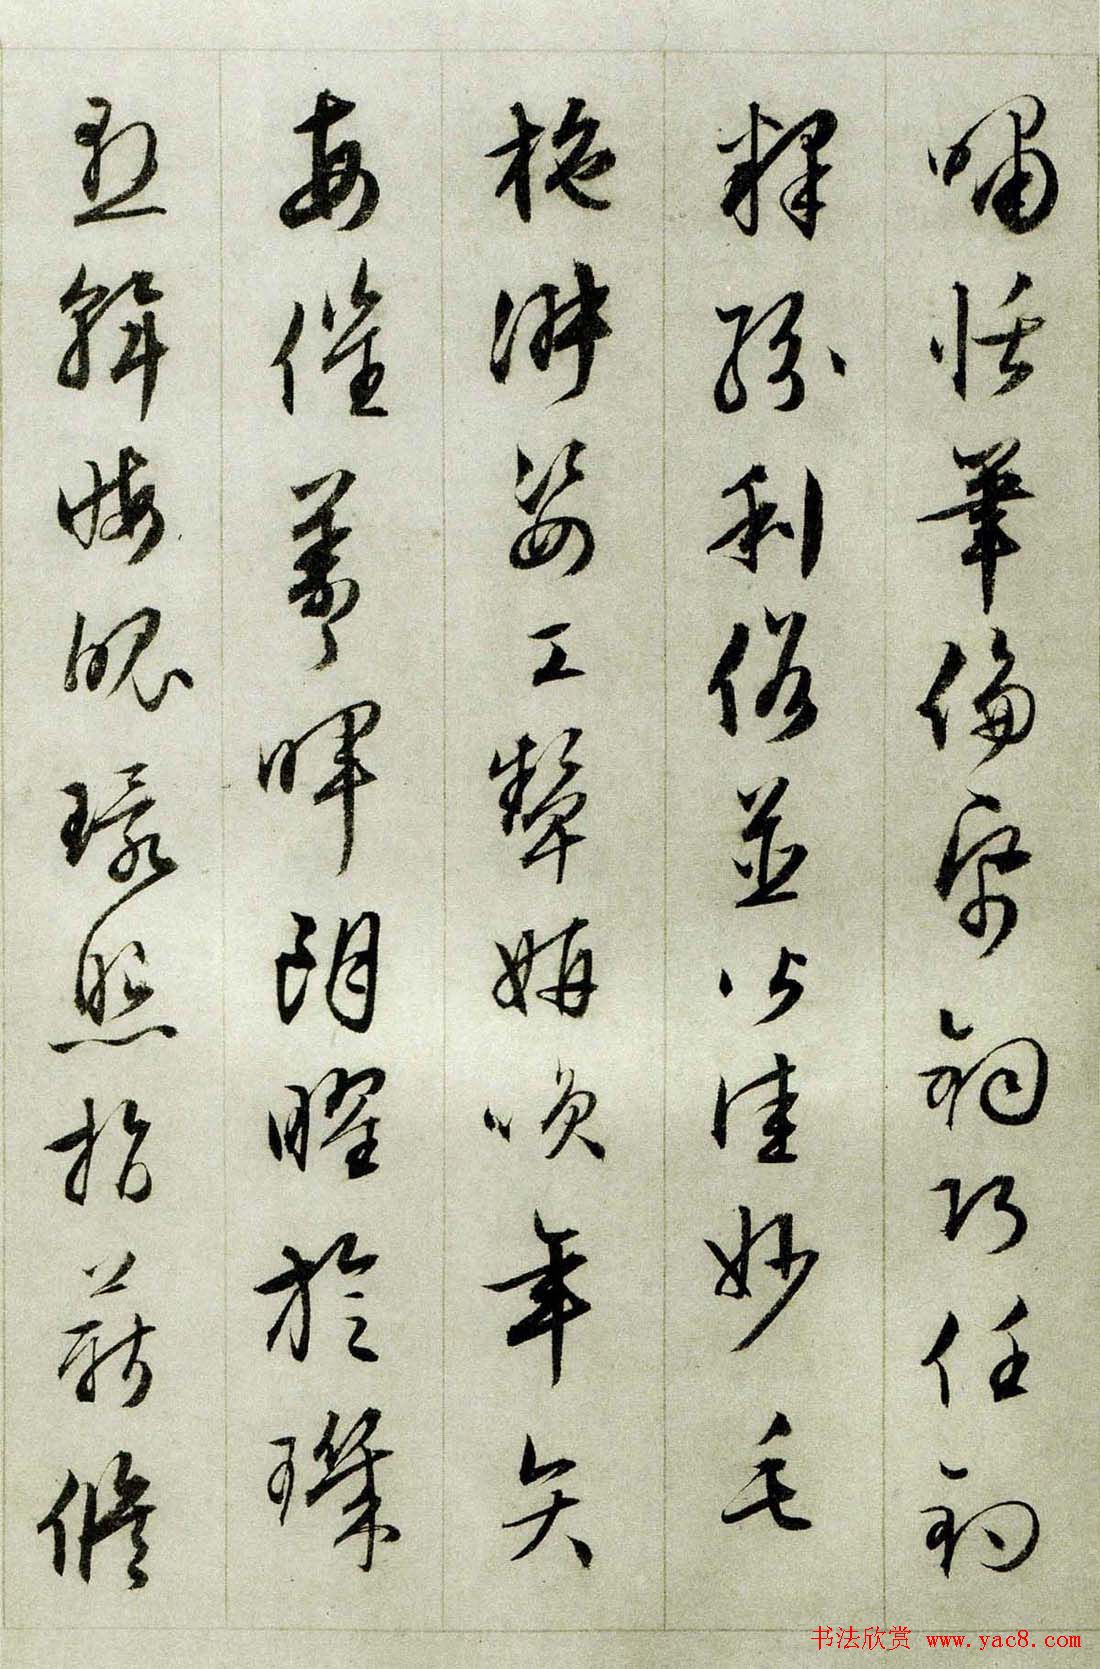 嘯恬筆倫帋鈞巧任釣
釋紛利俗並皆佳妙毛
施淑姿工顰妍咲年矢
每催羲暉朗曜旋璣
懸斡晦魄環照指薪修
书法欣赏 www.yac8.com